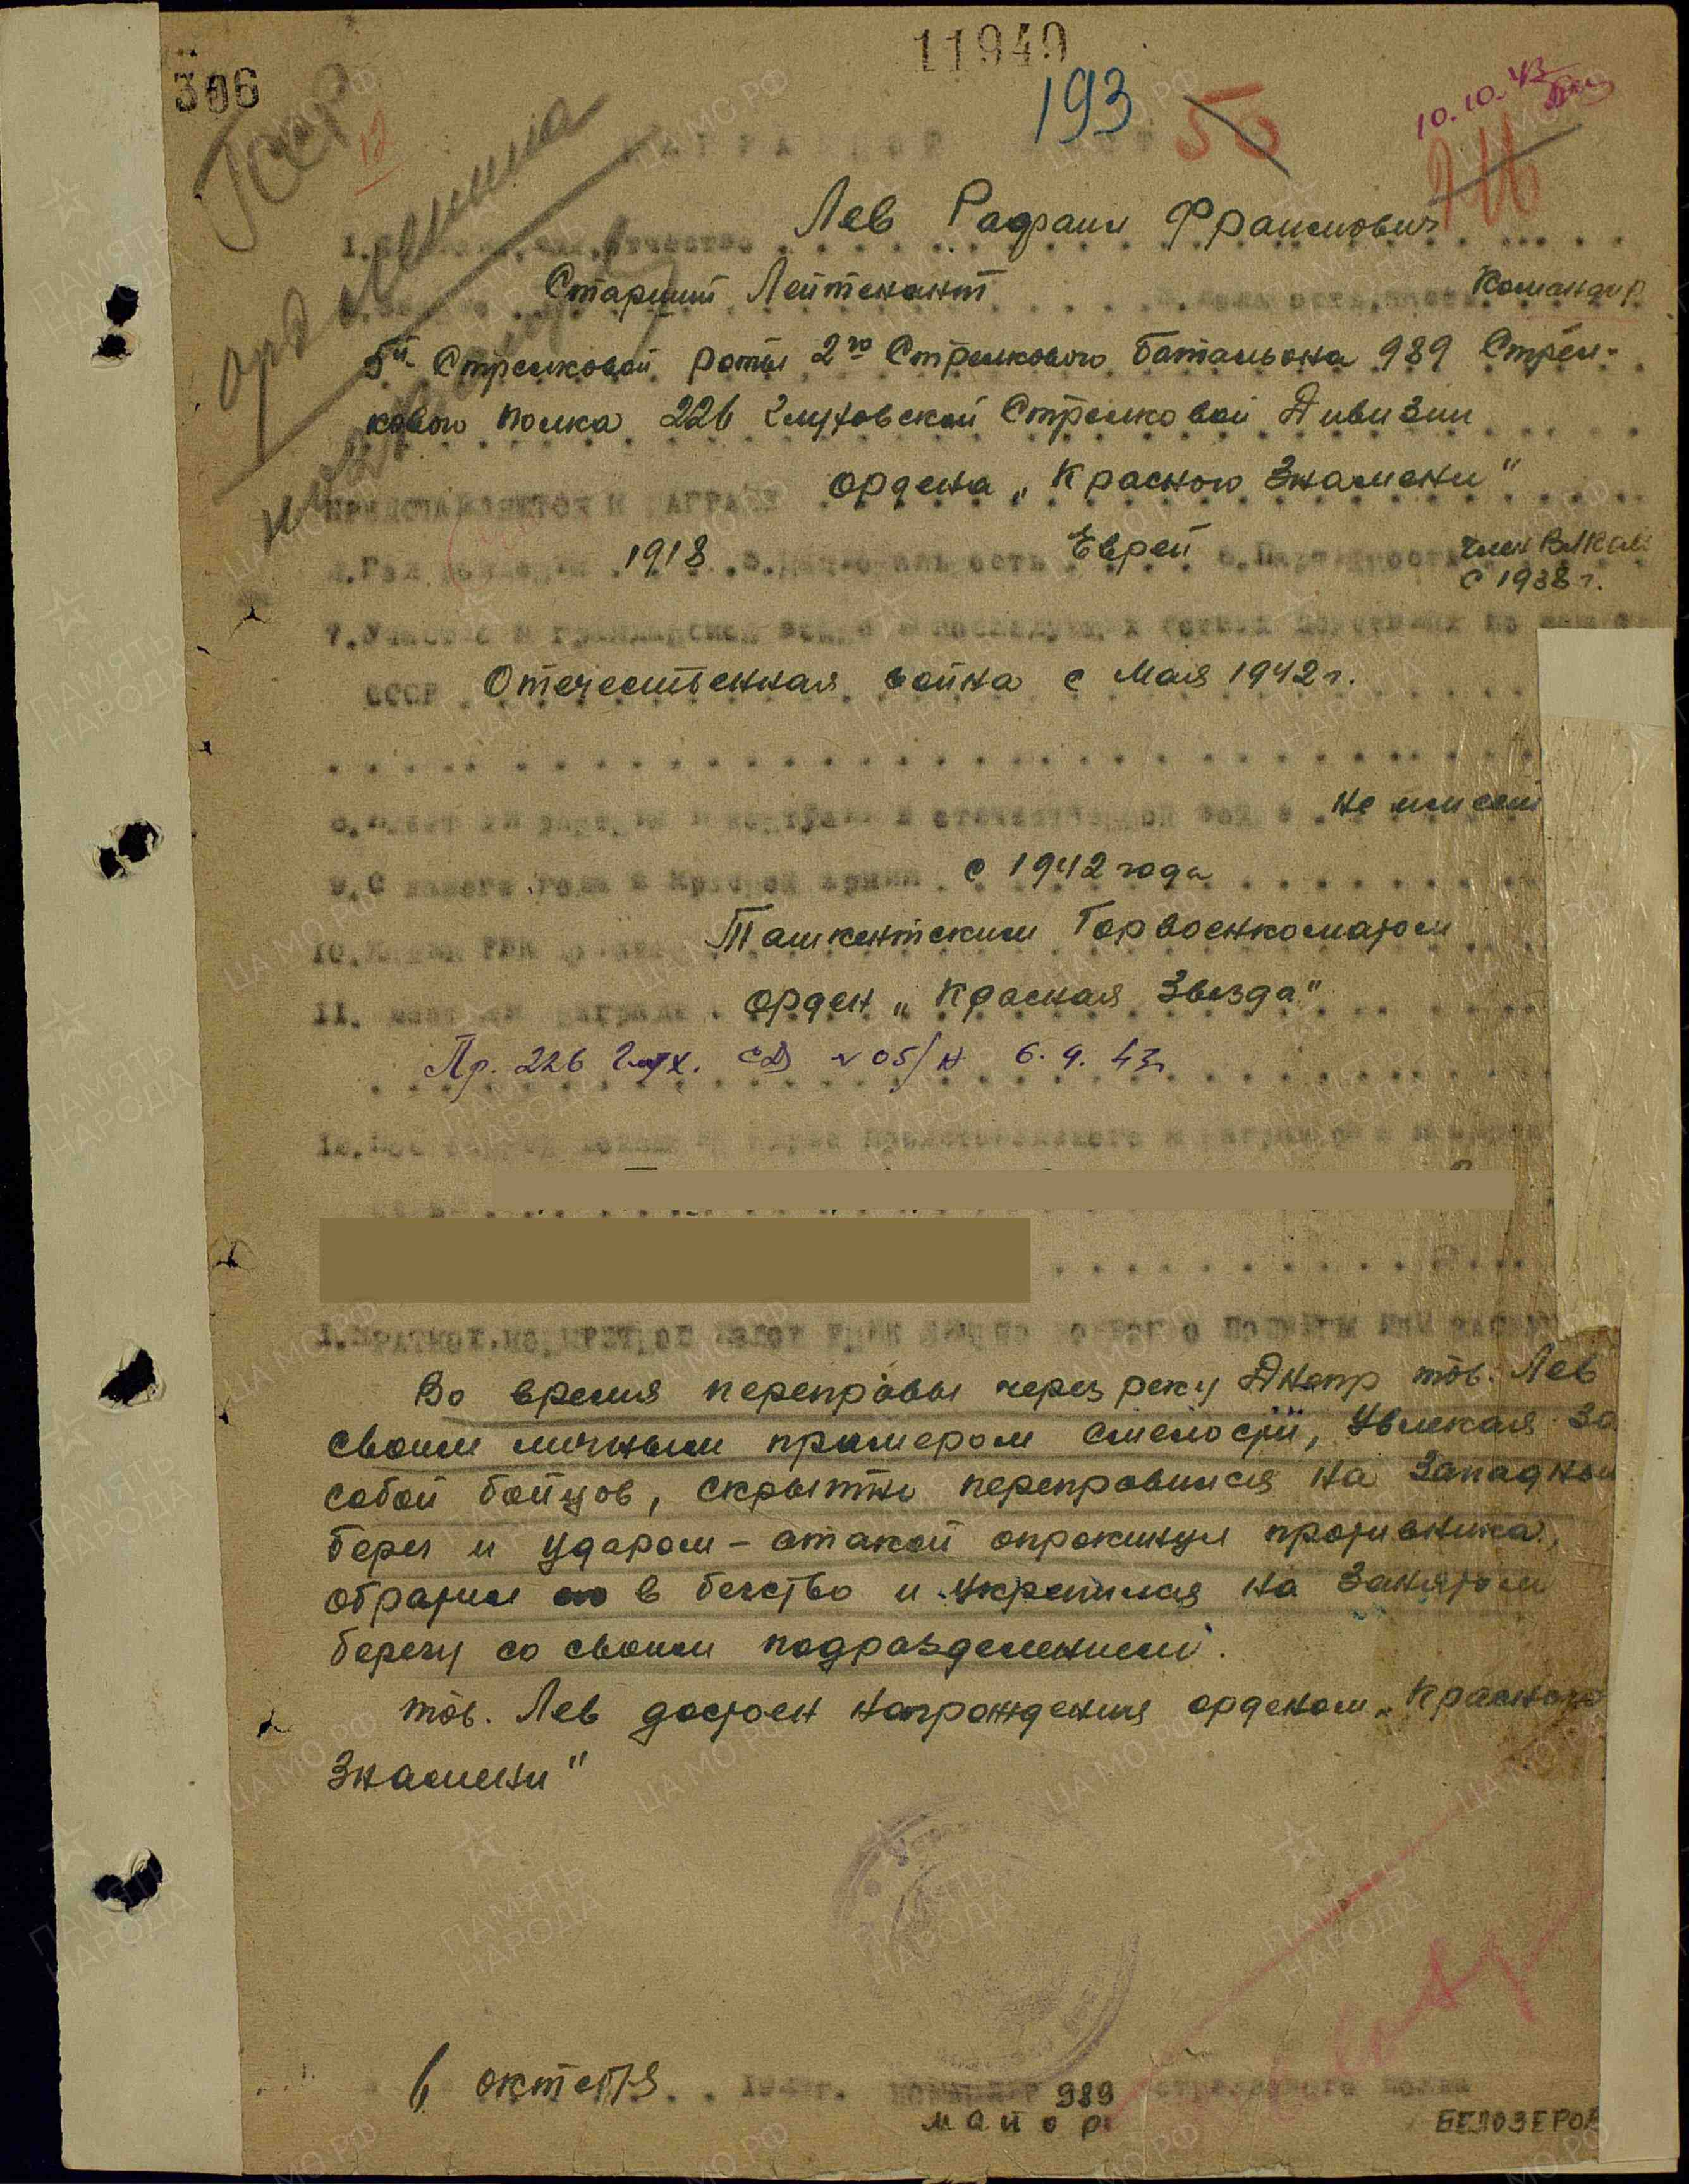 11940
306
193
50
10.10.43
Герр
12
орд Ленина
НАГРАДНОЙ ЛИСТ
1. Фамилия, имя, отчество Лев Рафаил Фраимович
2. Звание Старший Лейтенант 3. Должность, часть Командир
5й Стрелковой роты 2го Стрелкового батальона 989 Стрел-
кового полка 226 Глуховской Стрелковой Дивизии
ПРЕДСТАВЛЯЕТСЯ К НАГРАДЕ ордена „Красного Знамени"
4. Год рождения 1918 5. Национальность Еврей 6. Партийность член ВЛКСМ
с 1938 г.
7. Участие в гражданской войне и последующих боевых действиях по защите
СССР Отечественная война с Мая 1942 г.
8. Имеет ли ранения и контузии в отечественной войне не имеет
9. С какого года в Красной армии с 1942 года
10. Каким РВК призван Ташкентским Горвоенкоматом
11. Чем ранее награжден орден „Красная Звезда"
Пр. 226 Глух. СД №05/н 6.9.43г
12. Постоянный домашний адрес представляемого к награждению и адрес
1. КРАТКОЕ, КОНКРЕТНОЕ ИЗЛОЖЕНИЕ ЛИЧНОГО БОЕВОГО ПОДВИГА ИЛИ ЗАСЛУГ
Во время переправы через реку Днепр тов. Лев
своим личным примером смелости, увлекая за
собой бойцов, скрытно переправился на западный
берег и ударом – атакой опрокинул противника,
обратил его в бегство и укрепился на занятом
берегу со своим подразделением.
тов. Лев достоен награждения орденом „Красного
Знамени"
6 октября 194 г. КОМАНДИР 989 стрелкового полка
майор БЕЛОЗЕРОВ